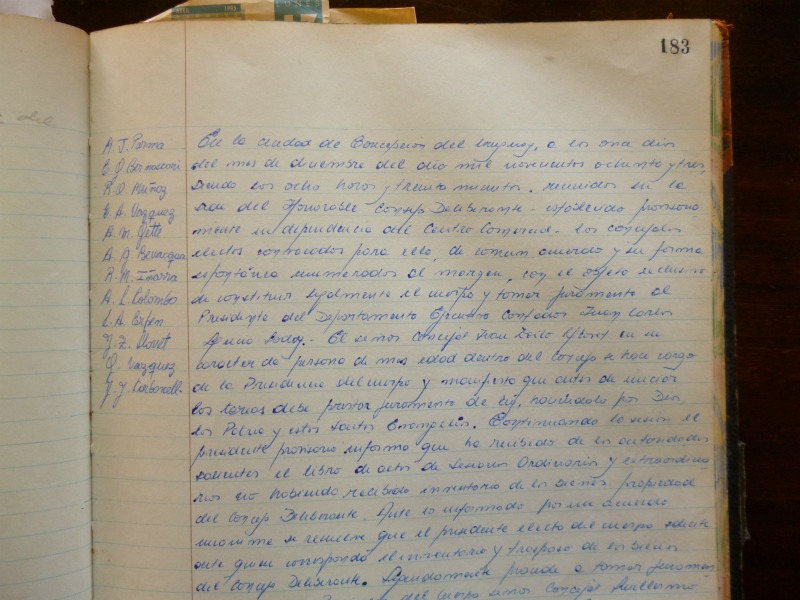 183
A. J. Parma
R. O. Muñoz
E. A. Vazquez
A. M. Jette
R. M. Iñarra
A. L. Colombo
L. A. Erpen
J. Z. Llovet
O. Vazquez
J. J. Carbonell
En la ciudad de Concepción del Uruguay, a los once días
del mes de diciembre del año mil novecientos ochenta y tres,
siendo las ocho horas y treinta minutos, reunidos en la
sede del Honorable Concejo Deliberante - establecido provisoria
mente en dependencia del Centro Comercial - los concejales
electos convocados para ello, de común acuerdo y en forma
espontánea enumerados al margen, con el objeto exclusivo
de constituir legalmente el cuerpo y tomar juramento al
Presidente del Departamento Ejecutivo Contador Juan Carlos
- El señor Concejal Juan Zoilo Llovet en su
caracter de persona de mas edad dentro del Concejo se hace cargo
de la Presidencia del cuerpo y manifiesta que antes de iniciar
las tareas debe prestar juramento de ley, haciéndolo por Dios,
la Patria y estos Santos Evangelios. Continuando la sesión el
presidente provisorio informa que ha recibido de las autoridades
salientes el libro de actas de Sesiones Ordinarias y extraordina
rias no habiendo recibido inventario de los bienes propiedad
del Concejo Deliberante. Ante lo informado por un acuerdo
unánime se resuelve que el presidente electo del cuerpo solicite
ante quien corresponda el inventario y traspaso de los bienes
del Concejo Deliberante. Seguidamente procede a tomar juramen
del Cuerpo señor Concejal Guillermo